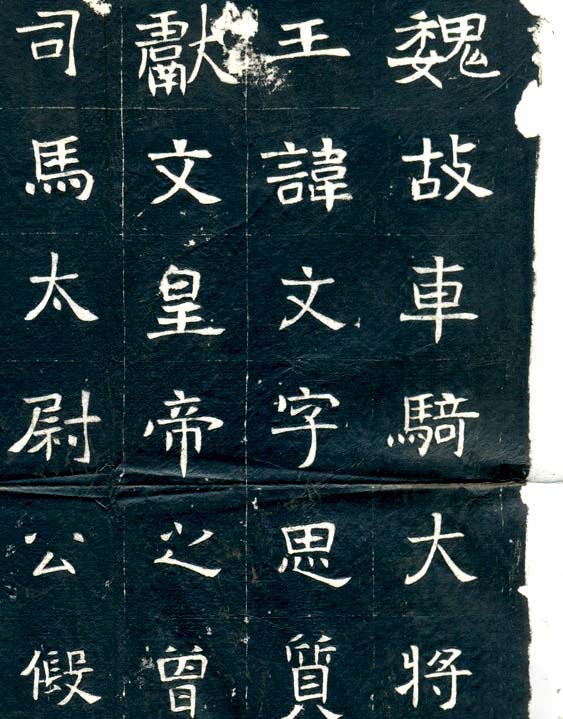 魏故車騎大將
王諱文字思質
獻文皇帝之曾
司馬太尉公假